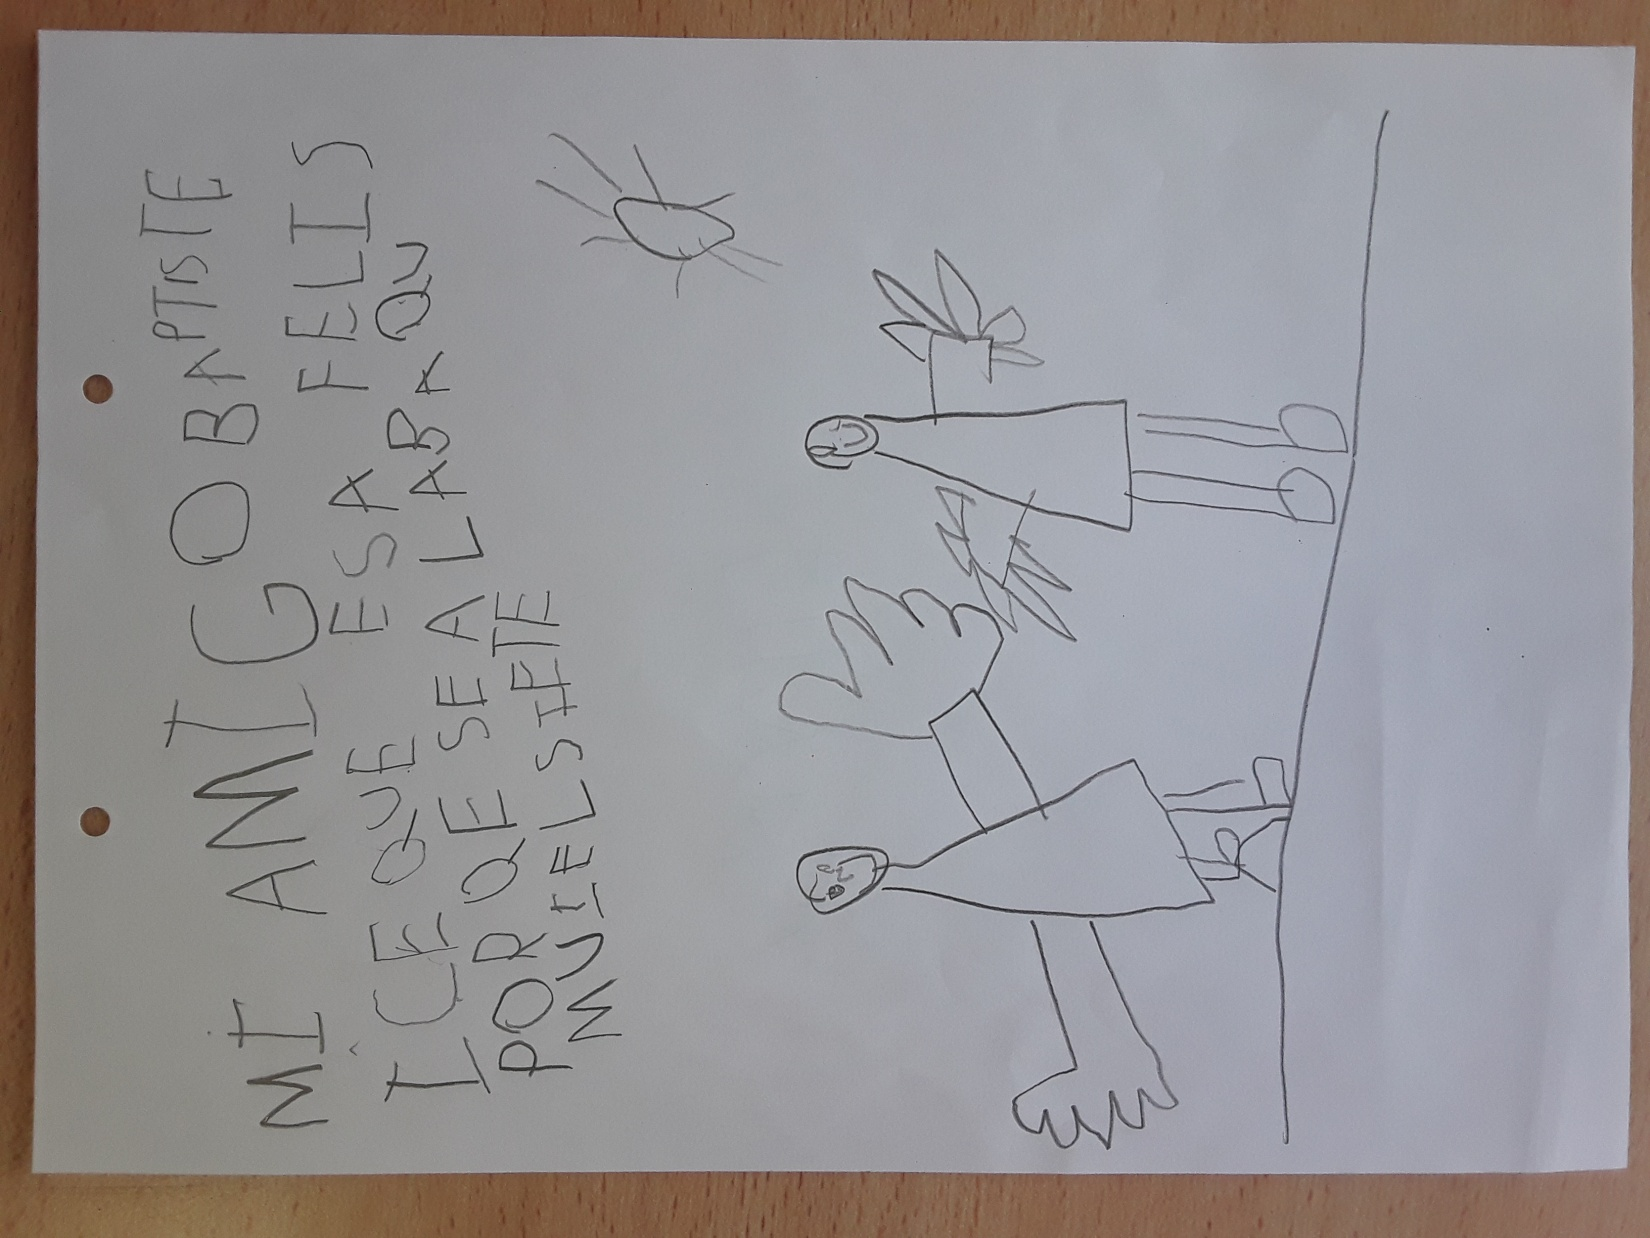 MI AMIGO BAPTISTE
ICE QUE ESA FELIS
PORQESE A LABA QU
MUIELSIETE